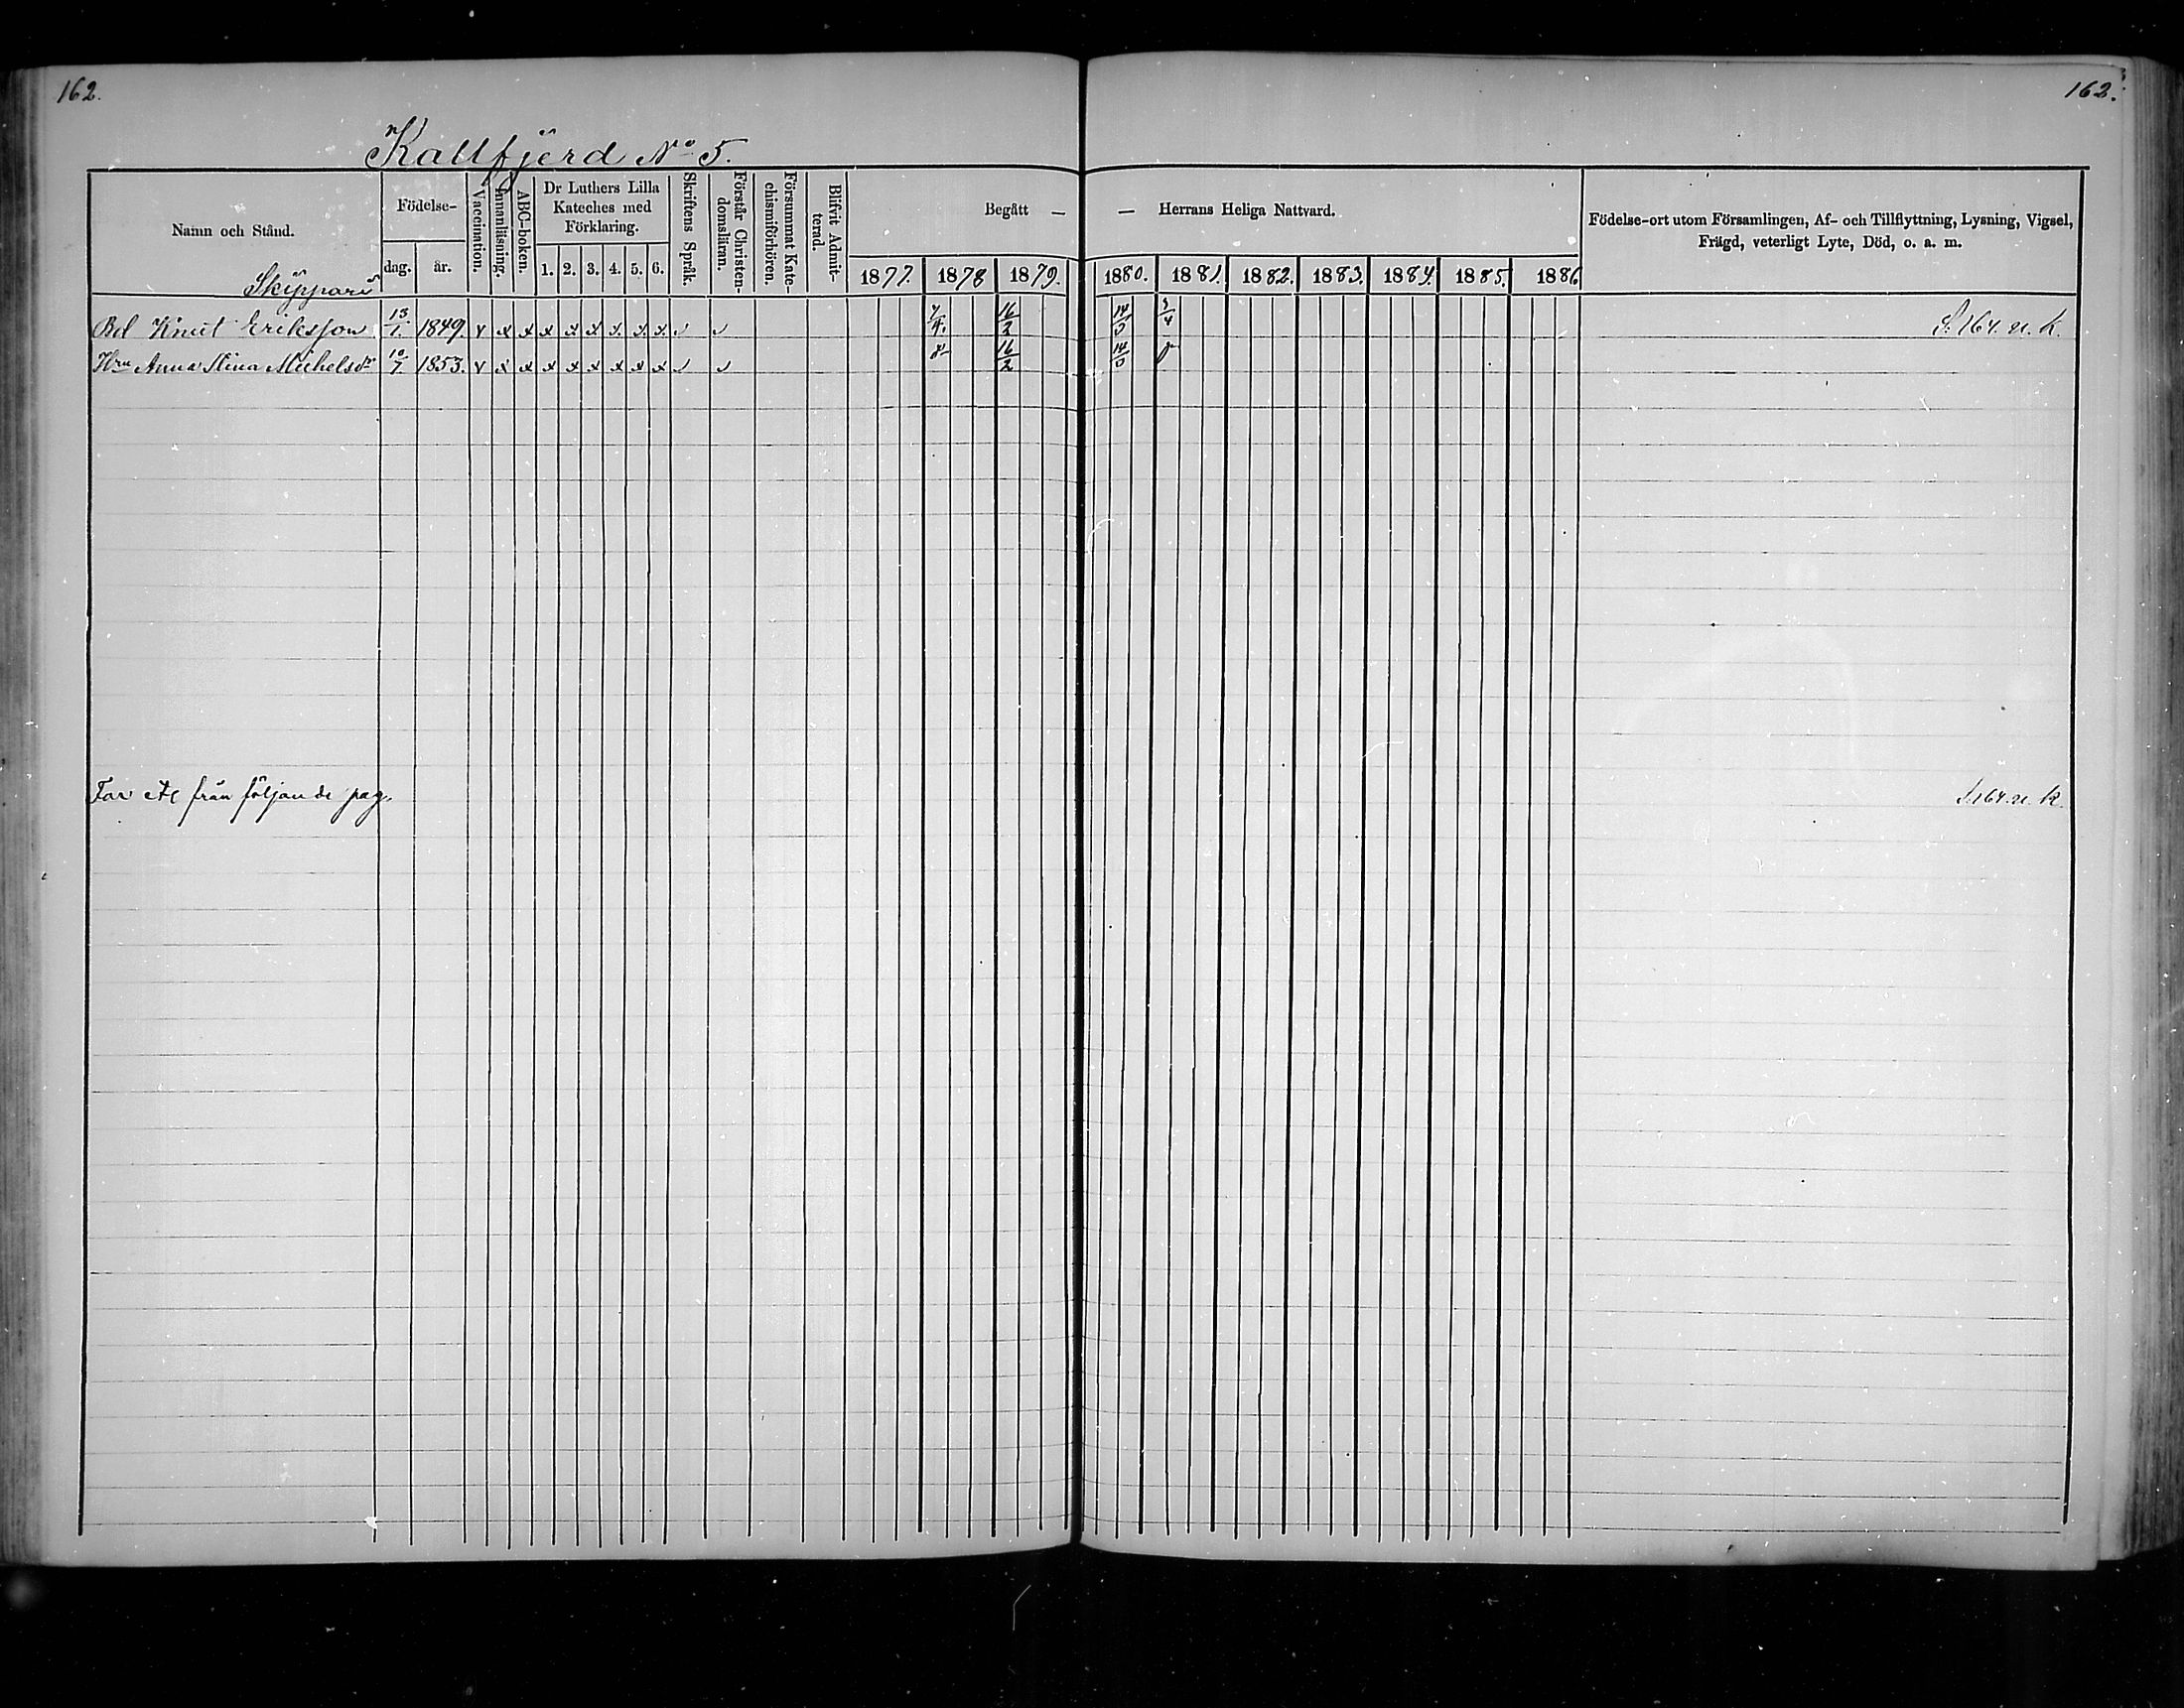 162. 162.
Kallfjerd No 5.
Namn och Stånd. Födelse- dag. år. Vaccination. Innanläsning. ABC-boken. Dr Luthers Lilla Kateches med Förklaring. 1. 2. 3. 4. 5. 6. Skriftens Språk. Förstår Christendomsläran. Försummat Katechismiförhören. Blifvit Admitterad. Begått — — Herrans Heliga Nattvard. Födelse-ort utom Församlingen, Af- och Tillflyttning, Lysning, Vigsel,
Frägd, veterligt Lyte, Död, o. a. m.
1877. 1878 1879. 1880. 1881. 1882. 1883. 1884. 1885. 1886
Skippars
Bd Knut Eriksson 13/1. 1849. v x x x x x x x x 7/4. 16/2 14/3 3/4 S. 164. n. k.
Hru Anna Stina Michelsdr 10/7 1853. v x x x x x x x x 16/2 14/3
från följande pag. S. 164. n. k.